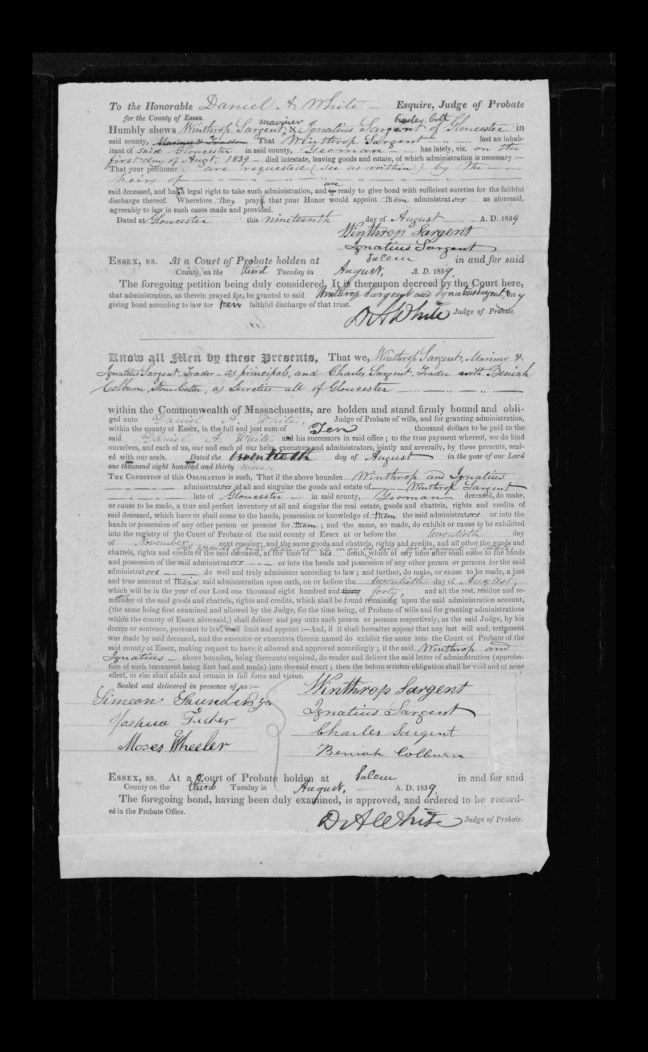 To the Honorable Daniel A. White — Esquire, Judge of Probate
for the County of Essex.
mariner &
Humbly shews Winthrop Sargent, & Ignatius Sargent of Gloucester in
said county, Mariner & Trader That Winthrop Sargent last an inhab-
itant of said Gloucester in said county, Yeoman has lately, viz. on the
first day of Augt. 1839 — died intestate, leaving goods and estate, of which administration is necessary :—
That your petitioner are requested (see as within) by the
heirs of
said deceased, and has legal right to take such administration, and are ready to give bond with sufficient sureties for the faithful
discharge thereof. Wherefore they pray that your Honor would appoint them administrators as aforesaid,
agreeably to law in such cases made and provided.
Dated at Gloucester this nineteenth day of August A. D. 1839
Winthrop Sargent
Ignatius Sargent
Essex, ss. At a Court of Probate holden at Salem in and for said
County, on the third Tuesday in August, A. D. 1839.
The foregoing petition being duly considered, It is thereupon decreed by the Court here,
that administration, as therein prayed for, be granted to said Winthrop Sargent and Ignatius Sargent, they
giving bond according to law for faithful discharge of that trust.
D A White Judge of Probate.
Know all Men by these Presents, That we, Winthrop Sargent, Mariner &
Ignatius Sargent Trader — as principals, and Charles Sargent, Trader with Beniah
Colburn, Stone Cutter, as Sureties all of Gloucester
within the Commonwealth of Massachusetts, are holden and stand firmly bound and obli-
ged unto Daniel A. White, Judge of Probate of wills, and for granting administration,
within the county of Essex, in the full and just sum of Ten thousand dollars to be paid to the
said Daniel A. White and his successors in said office; to the true payment whereof, we do bind
ourselves, and each of us, our and each of our heirs, executors and administrators, jointly and severally, by these presents, seal-
ed with our seals. Dated the twentieth day of August in the year of our Lord
one thousand eight hundred and thirty nine.
The Condition of this Obligation is such, That if the above bounden Winthrop and Ignatius
administrators of all and singular the goods and estate of Winthrop Sargent
late of Gloucester in said county, Yeoman deceased, do make,
or cause to be made, a true and perfect inventory of all and singular the real estate, goods and chattels, rights and credits of
said deceased, which have or shall come to the hands, possession or knowledge of them the said administrators or into the
hands or possession of any other person or persons for them; and the same, so made, do exhibit or cause to be exhibited
into the registry of the Court of Probate of the said county of Essex at or before the twentieth day
of November next ensuing; and the same goods and chattels, rights and credits, and all other the goods and
chattels, rights and credits of the said deceased, at the time of his death, which at any time after shall come to the hands
and possession of the said administrators or into the hands and possession of any other person or persons for the said
administrators do well and truly administer according to law; and further, do make, or cause to be made, a just
and true account of their said administration upon oath, on or before the twentieth day of August,
which will be in the year of our Lord one thousand eight hundred and thirty forty, and all the rest, residue and re-
mainder of the said goods and chattels, rights and credits, which shall be found remaining upon the said administration account,
(the same being first examined and allowed by the Judge, for the time being, of Probate of wills and for granting administrations
within the county of Essex aforesaid,) shall deliver and pay unto such person or persons respectively, as the said Judge, by his
decree or sentence, pursuant to law, shall limit and appoint :—And, if it shall hereafter appear that any last will and testament
was made by said deceased, and the executor or executors therein named do exhibit the same into the Court of Probate of the
said county of Essex, making request to have it allowed and approved accordingly; if the said Winthrop and
Ignatius — above bounden, being thereunto required, do render and deliver the said letter of administration (approba-
tion of such testament being first had and made) into the said court; then the before written obligation shall be void and of none
effect, or else shall abide and remain in full force and virtue.
Sealed and delivered in presence of us :—
Joshua Tucker
Moses Wheeler
Winthrop Sargent
Ignatius Sargent
Charles Sargent
Beniah Colburn
Essex, ss. At a Court of Probate holden at Salem in and for said
County on the third Tuesday in August, A. D. 1839.
The foregoing bond, having been duly examined, is approved, and ordered to be record-
ed in the Probate Office.
D A White Judge of Probate.